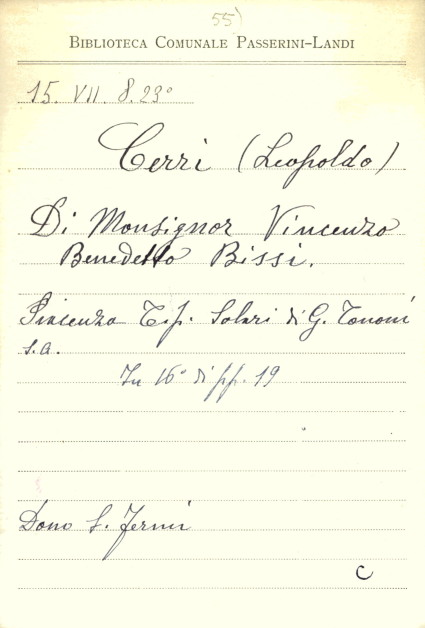 55)
BIBLIOTECA COMUNALE PASSERINI-LANDI
15. VII. 8. 23°
Cerri (Leopoldo)
Di Monsignor Vincenzo
Benedetto Bissi.
Piacenza Tip. Solari di G. Tononi
s.a.
In 16° di pp. 19
Dono S. Fermi
C